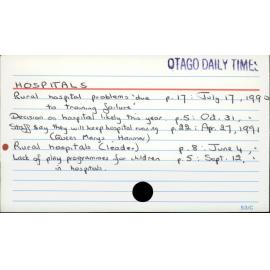 OTAGO DAILY TIMES
HOSPITALS
Rural hospital problems 'due p.17: July 17, 1990
to training failure'
Decision on hospital likely this year p.5: Oct. 31, "
Staff say they will keep hospital running p.22: Apr. 27, 1991
(Queen Mary, Hanmer)
Rural hospitals (leader) p.8: June 4, "
Lack of play programmes for children p.5: Sept. 12, "
in hospitals.